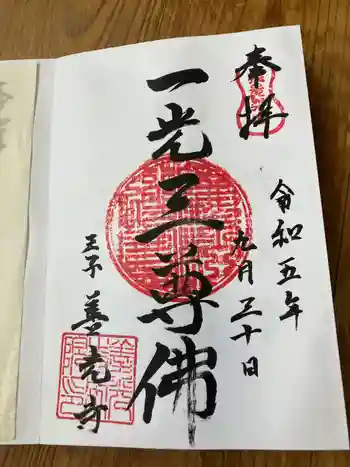 奉拝
令和五年
九月三十日
一光三尊佛
王子
善光寺